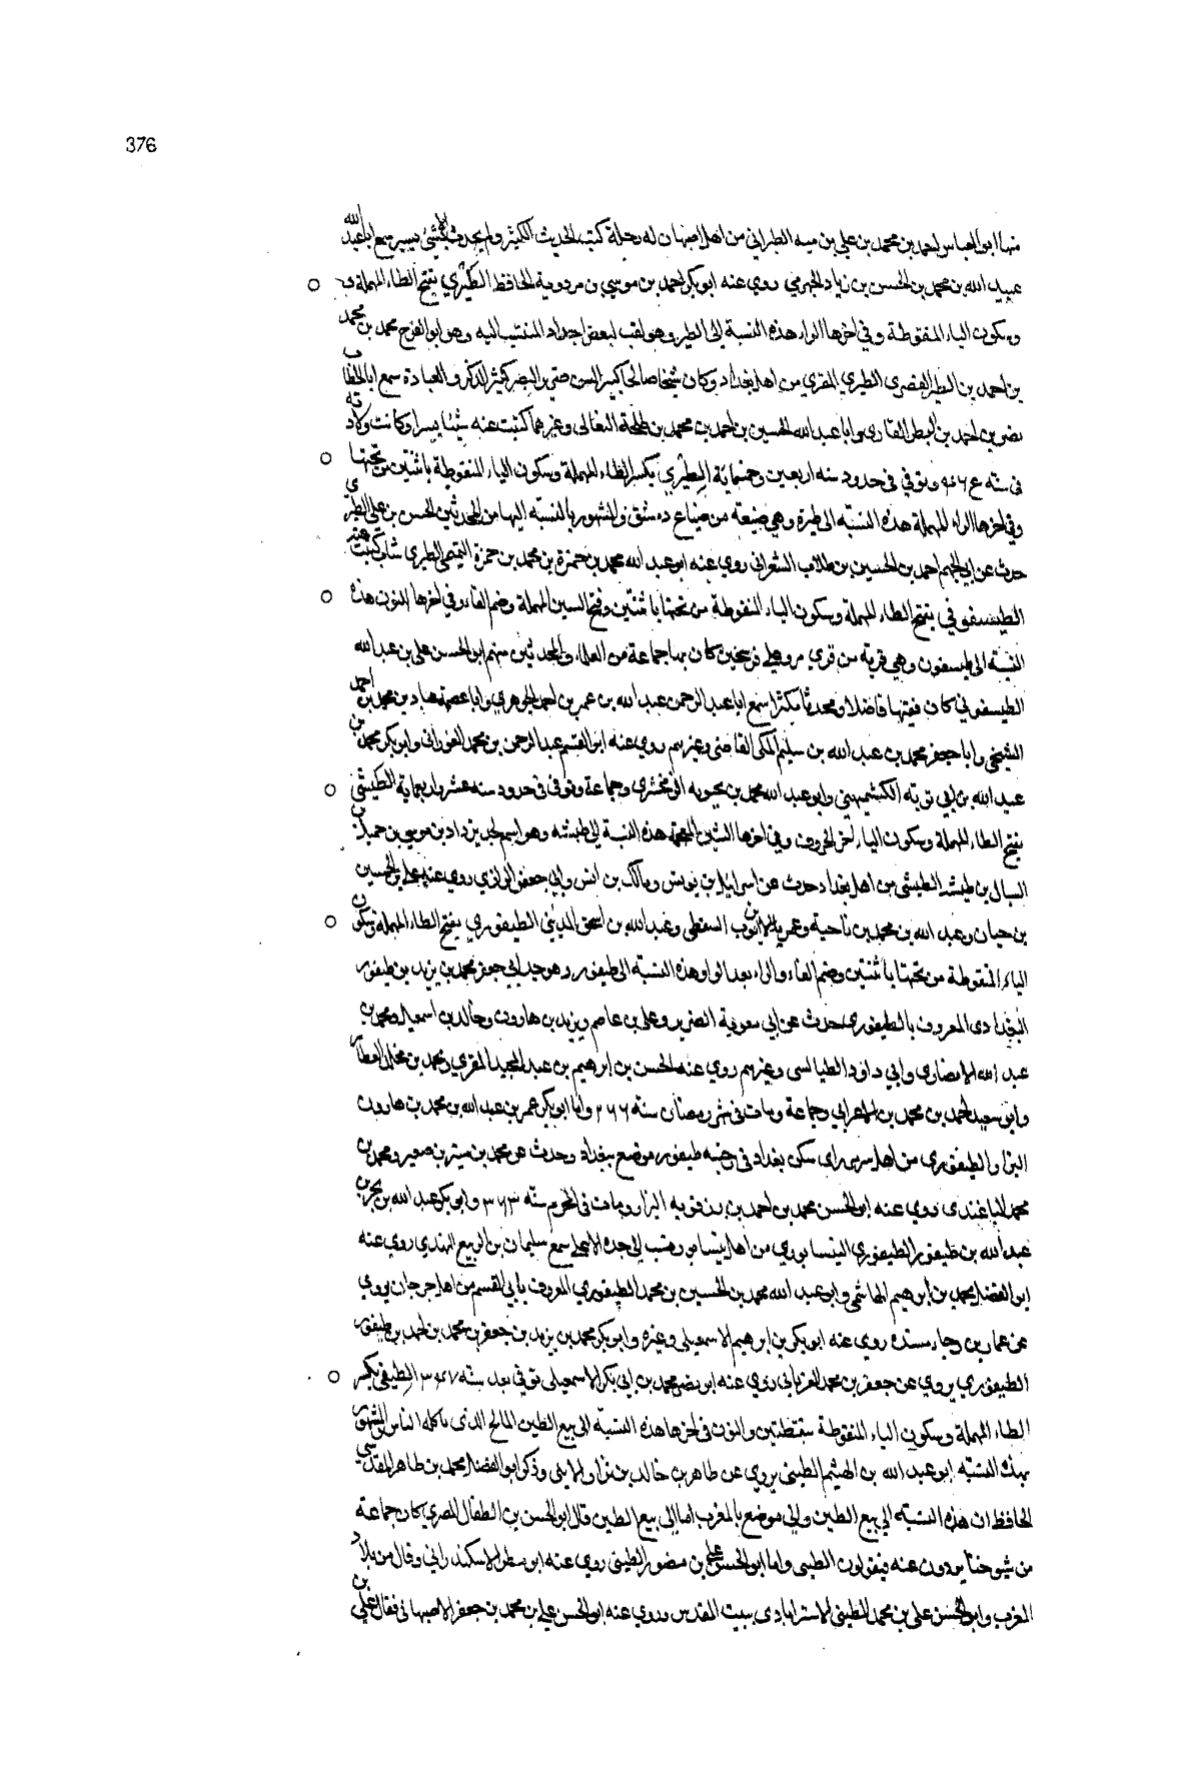 376
منها ابو العباس احمد بن محمد بن علي بن الطيراني من اهل اصبهان له رحلة كتب الحديث الكثير ولم يحدث الا بشئ يسير سمع ابا عبد الله
عبيد الله بن محمد بن الحسن بن زياد الجهرمي روي عنه ابو بكر احمد بن موسي بن مردوية الحافظ الطَيْري بفتح الطاء المهملة
وسكون الياء المنقوطة وفي اخرها الراء هذه النسبة الى الطير وهو لقب لبعض اجداد المنتسب اليه وهو ابو الفرج محمد بن محمد
بن احمد بن الطير القصرى الطيري المقري من اهل بغداد وكان شيخا صالحا كبير السن حتى بن البصر كثير الذكر والعبادة سمع ابا الخطاب
نصر بن احمد بن البطر القارى وابا عبد الله الحسين بن احمد بن محمد بن طلحة النعالى وغيرهما كتبت عنه شيئا يسيرا وكانت ولادته
فى سنه وتوفي فى حدود سنه اربعين وخمسماية الطِيْري بكسر الطاء المهملة وسكون الياء المنقوطة باثنتين من تحتها
وفي اخرها الراء المهملة هذه النسبه الى طيرة وهي ضيعه من ضياع دمشق والمشهور بالنسبه اليها من المحدثين الحسن بن على الطيرى
حدث عن ابي الجهم احمد بن الحسين بن طلاب الشعرانى روي عنه ابو عبد الله محمد بن حمزة بن محمد بن حمزة التميمى الطيرى شاب كتبت عنه
الطيسفوني بفتح الطاء المهملة وسكون الياء المنقوطة من تحتها باثنتين وفتح السين المهملة وضم الفاء وفي اخرها النون هذه
النسبه الى طيسفون وهي قرية من قري مرو على فرسخين كان بها جماعة من العلماء والمحدثين منهم ابو الحسن على بن عبد الله
الطيسفونى كان فقيها فاضلا ومحدثا مكثرا سمع ابا عبد الرحمن عبد الله بن عمر بن احمد الجوهري وابا عصمة عباد بن محمد بن احمد
الشيخي وابا جعفر محمد بن عبد الله بن سليم المكى القاضى وغيرهم روي عنه ابو القسم عبد الرحمن بن محمد الفورانى وابو بكر محمد بن
عبد الله بن ابي توبه الكشميهني وابو عبد الله محمد بن وجماعة وتوفى فى حدود سنه عشر واربعماية الطيشى
بفتح الطاء المهملة وسكون الياء اخر الحروف وفي اخرها الشين المعجمة هذه النسبة الى طيشه وهو اسم لجد يزداد بن موسي بن جميل بن
السبال بن طيشه الطيشى من اهل بغداد حدث عن اسرائيل بن يونس ومالك بن انس وابي جعفر الرازي روي عنه على بن الحسين
بن حيان وعبد الله بن محمد بن ناحية وعمر بن ايوب السقطى وعبد الله بن اسحق المدينى الطيفوري بفتح الطاء المهملة وسكون
الياء المنقوطة من تحتها باثنتين وضم الفاء والراء بعد الواو هذه النسبه الى طيفور وهو جد ابي جعفر محمد بن يزيد بن طيفور
البغدادى المعروف بالطيفورى حدث عن ابي معوية الضرير وعلى بن عاصم ويزيد بن هارون وخالد بن اسمعيل ومحمد بن
عبد الله الانصارى وابي داود الطيالسى وغيرهم روي عنه الحسن بن ابرهيم بن عبد المجيد المقري ومحمد بن مخلد العطار
وابو سعيد احمد بن محمد بن الاعرابي وجماعة ومات فى شهر رمضان سنة ٢٦٦ وابا ابو بكر عمر بن عبد الله بن محمد بن هارون
البزاز الطيفورى من اهل سرمراى سكن بغداد فى رحبه طيفور موضع ببغداد وحدث عن محمد بن صغير ومحمد بن
محمد الباغندى روي عنه ابو الحسن محمد بن احمد بن رزقويه البزار ومات فى المحرم سنه ٣٦٣ وابو بكر عبد الله بن يحيى بن
عبد الله بن طيفور الطيفوري النيسابوري من اهل نيسابور نسب الى جده الاعلى سمع سليمان بن الربيع النهدى روي عنه
ابو الفضل محمد بن ابرهيم الهاشمى وابو عبد الله محمد بن الحسين بن محمد الطيفوري المعروف بابي القسم من اهل جرجان يروي
عن عمار بن رجاء مسنده روي عنه ابو بكر بن ابرهيم الاسمعيلى وغيره وابو بكر محمد بن يزيد بن جعفر بن محمد بن احمد بن طيفور
الطيفوري يروي عن جعفر بن محمد الفريابي روي عنه ابو نصر محمد بن ابي بكر الاسمعيلى توفى بعد سنه ٣٦٧ الطينى بكسر
الطاء المهملة وسكون الياء المنقوطة بنقطتين والنون فى اخرها هذه النسبه الى بيع الطين المالح الذى ياكله الناس المشهور
بهذه النسبه ابو عبد الله بن الهيثم الطينى يروي عن طاهر بن خالد بن نزار الايلى وذكر ابو الفضل محمد بن طاهر المقدسى
الحافظ ان هذه النسبه الى بيع الطين والى موضع بالمغرب اما الى بيع الطين قال ابو الحسن بن الطفال المصري كان جماعة
من شيوخنا يروون عنه فيقولون الطينى واما ابو الحسن على بن منصور الطينى روي عنه ابو مطر الاسكندرانى وقال من بلاد
المغرب وابو الحسن على بن محمد الطينى الاسترابادى ببيت المقدس وروي عنه ابو الحسن على بن محمد بن جعفر الاصبهانى فقال على بن